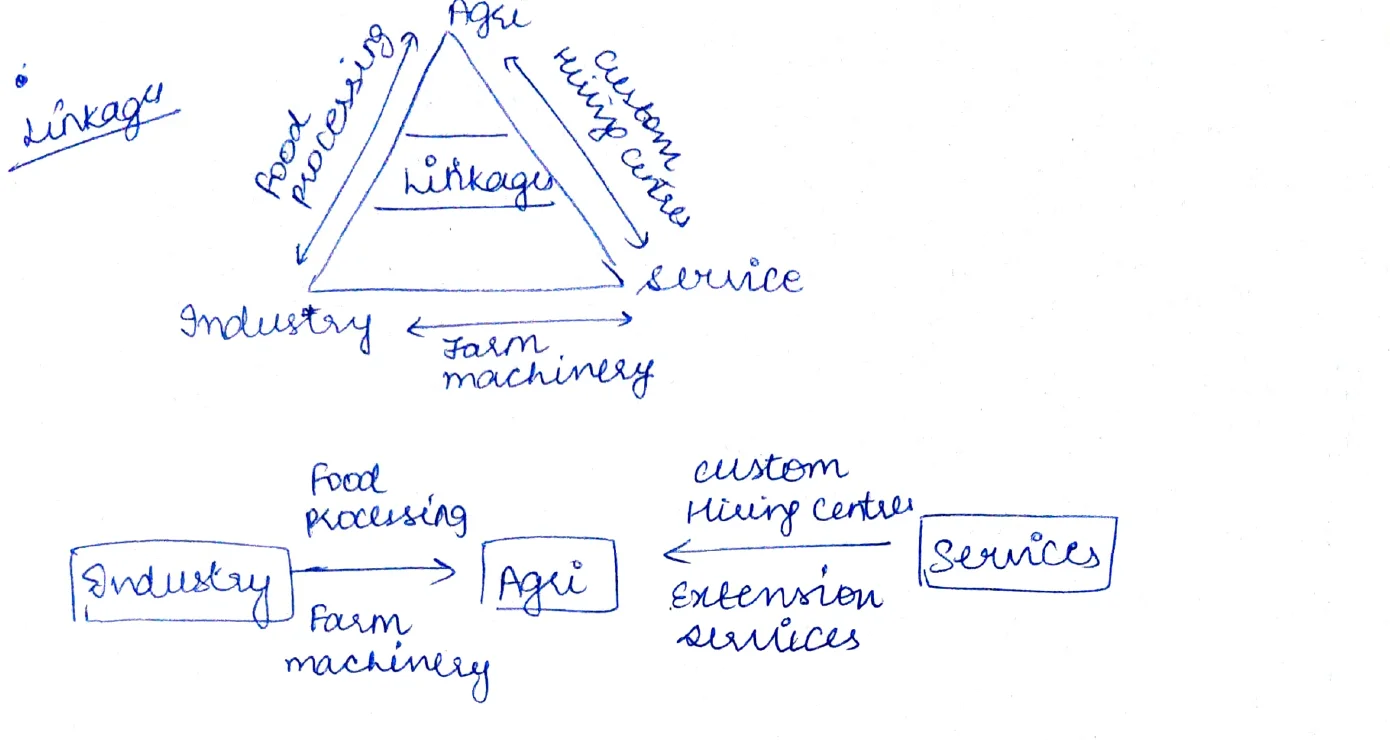 Agri
Linkages
Food
processing
Custom
Hiring Centres
Linkages
Service
Industry
Farm
machinery
Food
processing
custom
Hiring Centres
Industry
Agri
Services
Farm
machinery
Extension
services